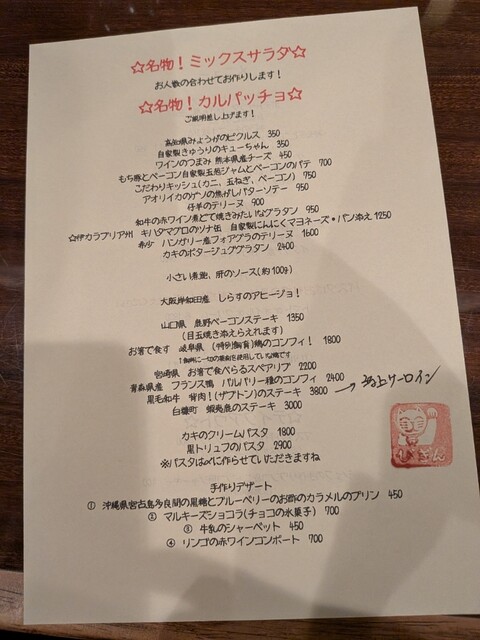 ☆名物！ミックスサラダ☆
お人数の合わせてお作りします！
☆名物！カルパッチョ☆
ご説明差し上げます！
高知県みょうがのピクルス 350
自家製きゅうりのキューちゃん 350
ワインのつまみ 熊本県産チーズ 450
もち豚とベーコン自家製玉葱ジャムとベーコンのパテ 700
こだわりキッシュ(カニ、玉ねぎ、ベーコン) 750
アオリイカのゲソの焦がしバターソテー 950
仔羊のテリーヌ 900
和牛の赤ワイン煮どて焼きみたいなグラタン 950
☆伊カラブリア州 キハダマグロのツナ缶 自家製にんにくマヨネーズ・パン添え 1250
希少 ハンガリー産フォアグラのテリーヌ 1600
カキのポタージュグラタン 2400
小さい煮鮑、肝のソース(約100g)
大阪岸和田産 しらすのアヒージョ！
山口県 鹿野ベーコンステーキ 1350
(目玉焼き添えられます)
お箸で食す 岐阜県 (特別飼育)鶏のコンフィ！ 1800
宮崎県 お箸で食べらるスペアリブ 2200
青森県産 フランス鴨 バルバリー種のコンフィ 2400
黒毛和牛 背肉！(ザブトン)のステーキ 3800 → 極上サーロイン
白糠町 蝦夷鹿のステーキ 3000
カキのクリームパスタ 1800
黒トリュフのパスタ 2900
※パスタは〆に作らせていただきますね
手作りデザート
① 沖縄県宮古島多良間の黒糖とブルーベリーのお酢のカラメルのプリン 450
② マルキーズショコラ(チョコの氷菓子) 700
③ 牛乳のシャーベット 450
④ リンゴの赤ワインコンポート 700